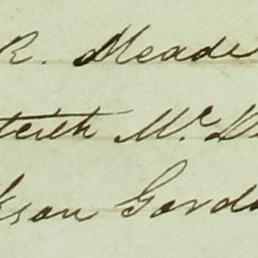 R. Meade
teith Mc. D
kson Gord